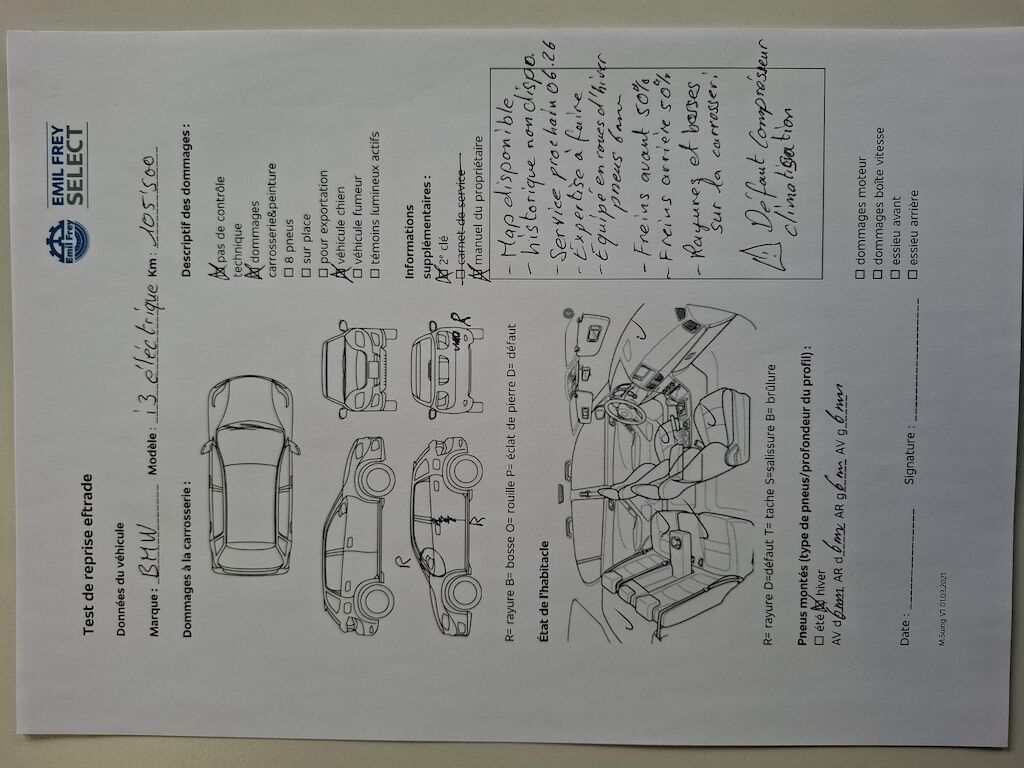 EMIL FREY
SELECT
Emil Frey
Test de reprise eftrade
Données du véhicule
Marque : BMW Modèle : i3 électrique Km : 105'500
Dommages à la carrosserie :
R
R
R
R= rayure B= bosse O= rouille P= éclat de pierre D= défaut
Descriptif des dommages :
☒ pas de contrôle
technique
☒ dommages
carrosserie&peinture
☐ 8 pneus
☐ sur place
☐ pour exportation
☒ véhicule chien
☐ véhicule fumeur
☐ témoins lumineux actifs
Informations
supplémentaires :
☒ 2ᵉ clé
☐ carnet de service
☒ manuel du propriétaire
- Map disponible,
historique non dispo.
- Service prochain 06.26
- Expertise à faire
- Équipé en roues d'hiver
pneus 6mm
- Freins avant 50%
- Freins arrière 50%
- Rayures et bosses
sur la carrosseri
⚠ Défaut Compresseur
climatisation
État de l'habitacle
R= rayure D=défaut T= tache S=salissure B= brûlure
Pneus montés (type de pneus/profondeur du profil) :
☐ été ☒ hiver
AV d 6mm AR d 6mm AR g 6mm AV g 6mm
☐ dommages moteur
☐ dommages boîte vitesse
☐ essieu avant
☐ essieu arrière
Date : Signature :
M.Suing V1 01.03.2021